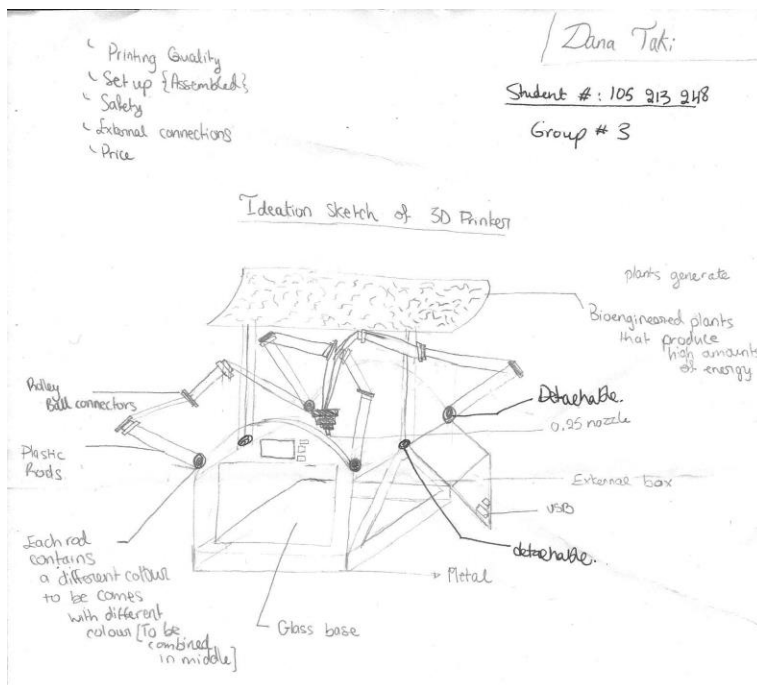 Printing Quality
Set up {Assembled}
Safety
External connections
Price
Dana Taki
Student #: 105 213 248
Group # 3
Ideation Sketch of 3D Printer
plants generate
Bioengineered plants
that produce
high amounts
of energy
Ball connectors
Detachable.
0.25 nozzle
Plastic
Rods
External box
USB
Each rod
contains
a different colour
to be comes
with different
colour [To be
combined
in middle]
detachable.
Metal
Glass base